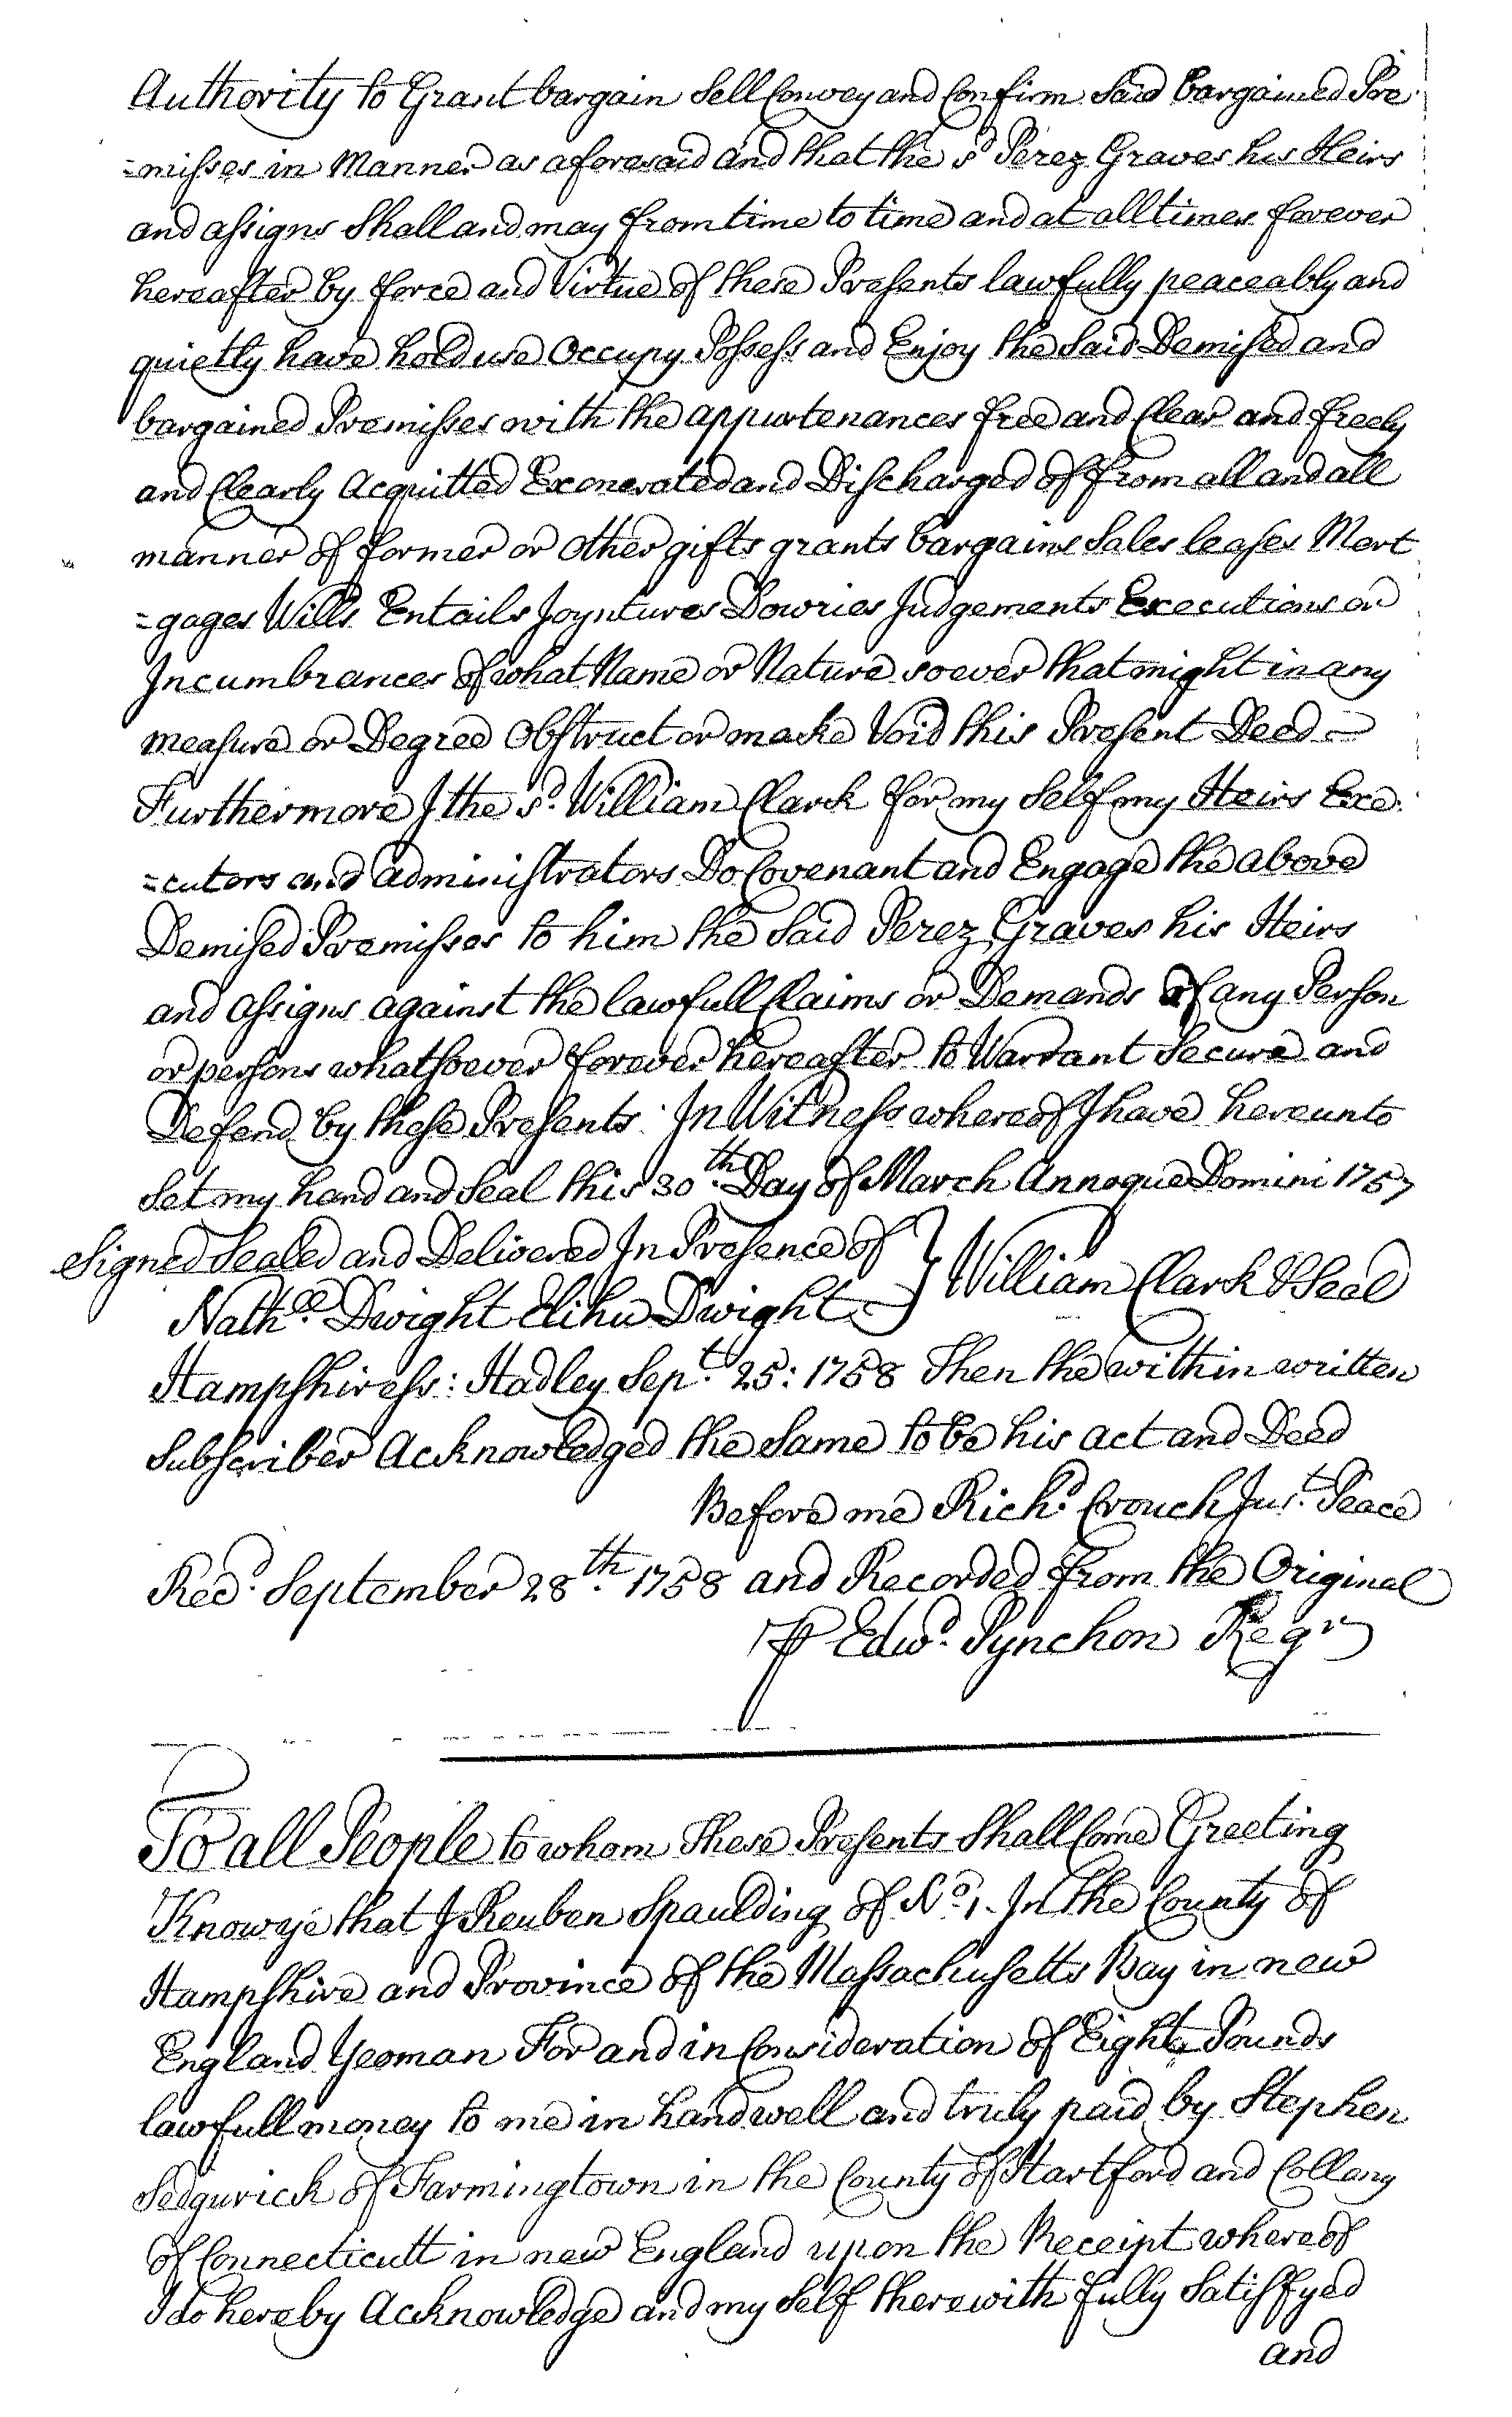 Authority to Grant bargain Sell Convey and Confirm Said bargained Pre
=misses in Manner as aforesaid and that the sd Perez Graves his Heirs
and assigns Shall and may from time to time and at all times forever
hereafter by force and Virtue of these Presents lawfully peaceably and
quietly have hold use Occupy Possess and Enjoy the Said Demised and
bargained Premisses with the appurtenances free and Clear and freely
and Clearly Acquitted Exonerated and Discharged of from all and all
manner of former or other gifts grants bargains Sales leases Mort
=gages Wills Entails Joyntures Dowries Judgements Executions or
Incumbrances of what Name or Nature soever that might in any
measure or Degree Obstruct or make Void this Present Deed
Furthermore I the sd. William Clark for my Self my Heirs Exe:
=cutors and administrators Do Covenant and Engage the above
Demised Premisses to him the Said Perez Graves his Heirs
and Assigns against the lawfull Claims or Demands of any Person
or persons whatsoever forever hereafter to Warrant Secure and
Defend by these Presents. In Witness whereof I have hereunto
Set my hand and Seal this 30th. Day of March Annoque Domini 1757
Signed Sealed and Delivered In Presence of } William Clark & Seal
Nathll. Dwight Elihu Dwight
Hampshire ss: Hadley Sept. 25: 1758 Then the within written
Subscriber Acknowledged the Same to be his act and Deed
Before me Richd. Crouch Just. Peace
Recd. September 28th. 1758 and Recorded from the Original
P Edwd. Pynchon Regr
To all People to whom These Presents Shall Come Greeting
Know ye that I Reuben Spaulding of No. 1. In the County of
Hampshire and Province of the Massachusetts Bay in new
England Yeoman For and in Consideration of Eight Pounds
lawfull money to me in hand well and truly paid by Stephen
Sedgwick of Farmingtown in the County of Hartford and Collany
of Connecticutt in new England upon the Receipt whereof
I do hereby Acknowledge and my Self therewith fully Satisfyed
and